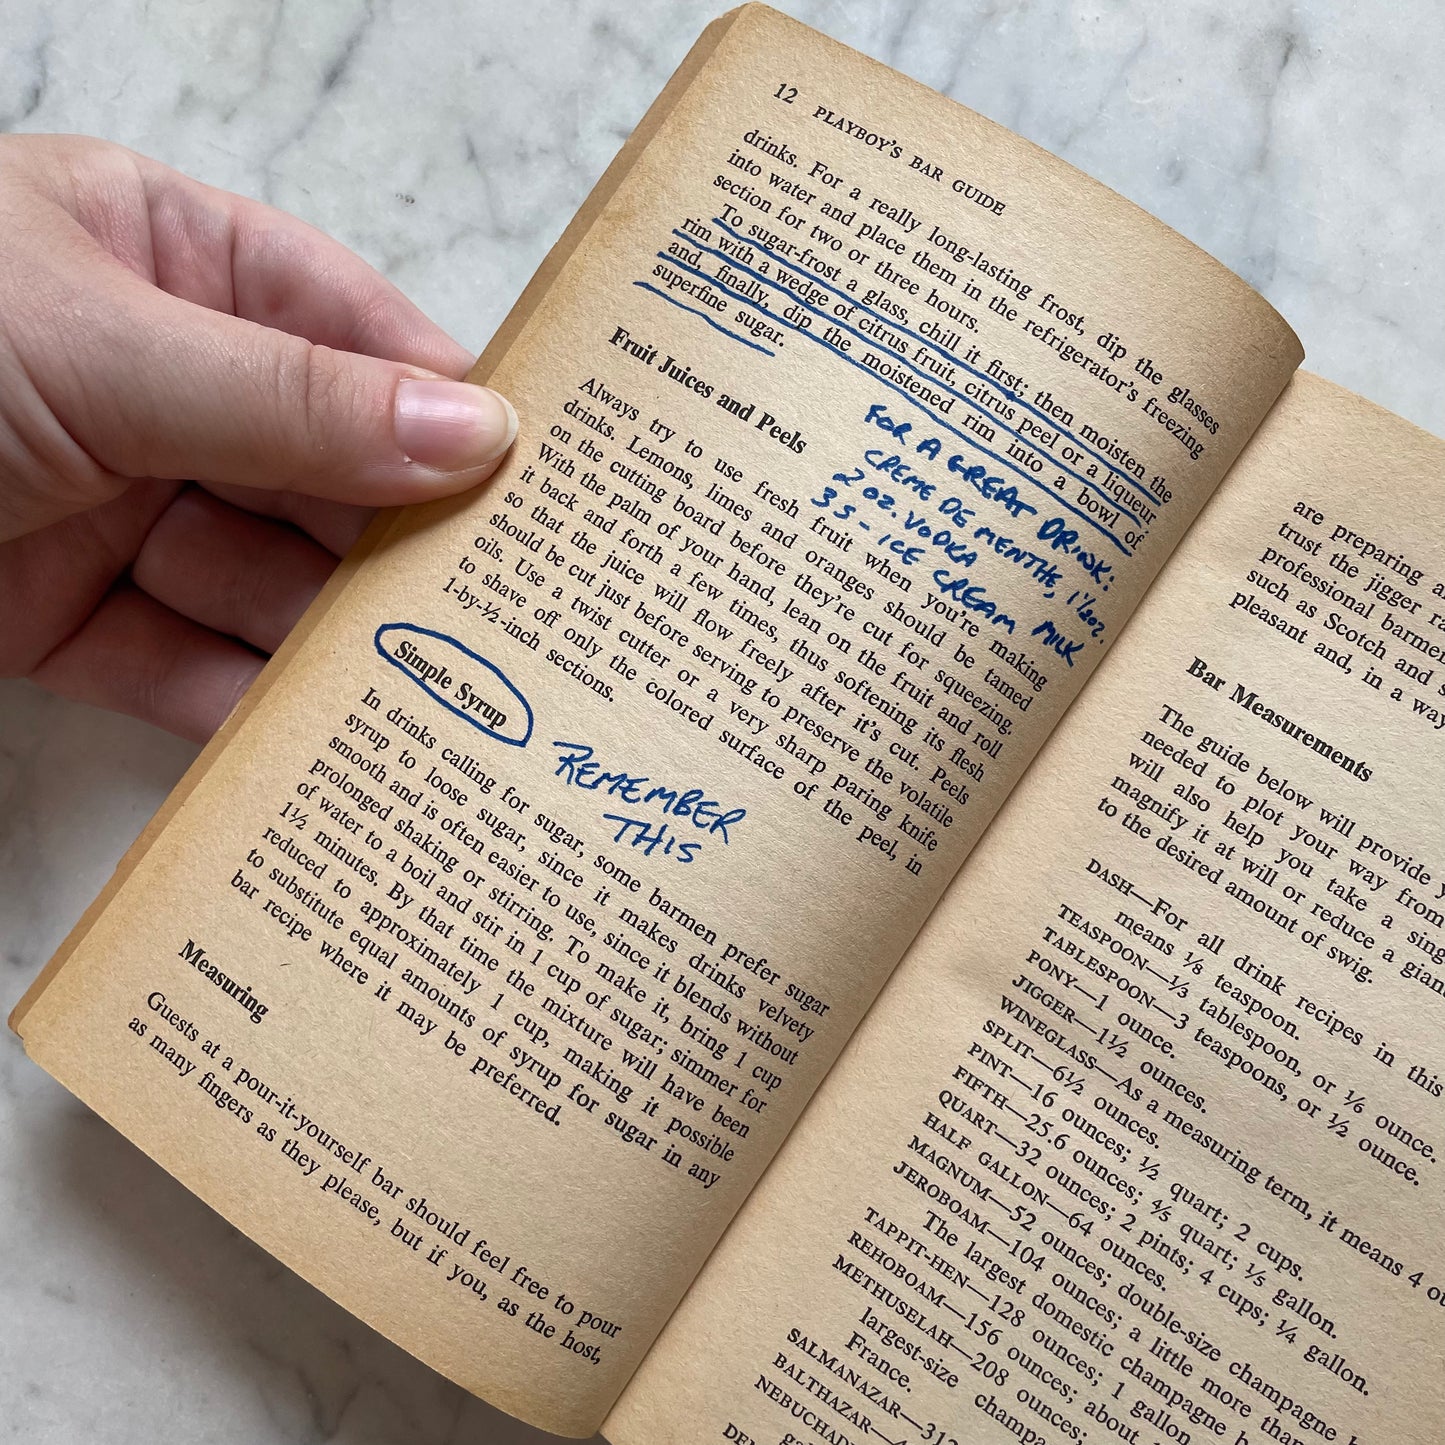 12 PLAYBOY'S BAR GUIDE
drinks. For a really long-lasting frost, dip the glasses
into water and place them in the refrigerator's freezing
section for two or three hours.
To sugar-frost a glass, chill it first; then moisten the
rim with a wedge of citrus fruit, citrus peel or a liqueur
and, finally, dip the moistened rim into a bowl of
superfine sugar.
FOR A GREAT DRINK:
CREME DE MENTHE, 1 1/2 OZ.
2 OZ. VODKA
3 S - ICE CREAM MILK
Fruit Juices and Peels
Always try to use fresh fruit when you're making
drinks. Lemons, limes and oranges should be tamed
on the cutting board before they're cut for squeezing.
With the palm of your hand, lean on the fruit and roll
it back and forth a few times, thus softening its flesh
so that the juice will flow freely after it's cut. Peels
should be cut just before serving to preserve the volatile
oils. Use a twist cutter or a very sharp paring knife
to shave off only the colored surface of the peel, in
1-by-½-inch sections.
Simple Syrup
REMEMBER
THIS
In drinks calling for sugar, some barmen prefer sugar
syrup to loose sugar, since it makes drinks velvety
smooth and is often easier to use, since it blends without
prolonged shaking or stirring. To make it, bring 1 cup
of water to a boil and stir in 1 cup of sugar; simmer for
1½ minutes. By that time the mixture will have been
reduced to approximately 1 cup, making it possible
to substitute equal amounts of syrup for sugar in any
bar recipe where it may be preferred.
Measuring
Guests at a pour-it-yourself bar should feel free to pour
as many fingers as they please, but if you, as the host,
are preparing
trust the jigger
professional barmen
such as Scotch and
pleasant and, in a way
Bar Measurements
The guide below will provide
needed to plot your way from
will also help you take a
magnify it at will or reduce a
to the desired amount of swig.
DASH—For all drink recipes in this
means ⅛ teaspoon.
TEASPOON—⅓ tablespoon, or ⅙ ounce.
TABLESPOON—3 teaspoons, or ½ ounce.
PONY—1 ounce.
JIGGER—1½ ounces.
WINEGLASS—As a measuring term, it means 4
SPLIT—6½ ounces.
PINT—16 ounces; ½ quart; 2 cups.
FIFTH—25.6 ounces; ⅘ quart; ⅕ gallon.
QUART—32 ounces; 2 pints; 4 cups; ¼ gallon.
HALF GALLON—64 ounces.
MAGNUM—52 ounces; double-size champagne
JEROBOAM—104 ounces; a little more than
The largest domestic champagne
TAPPIT-HEN—128 ounces; 1 gallon
REHOBOAM—156 ounces; about
METHUSELAH—208 ounces;
largest-size
France.
SALMANAZAR—312
BALTHAZAR—